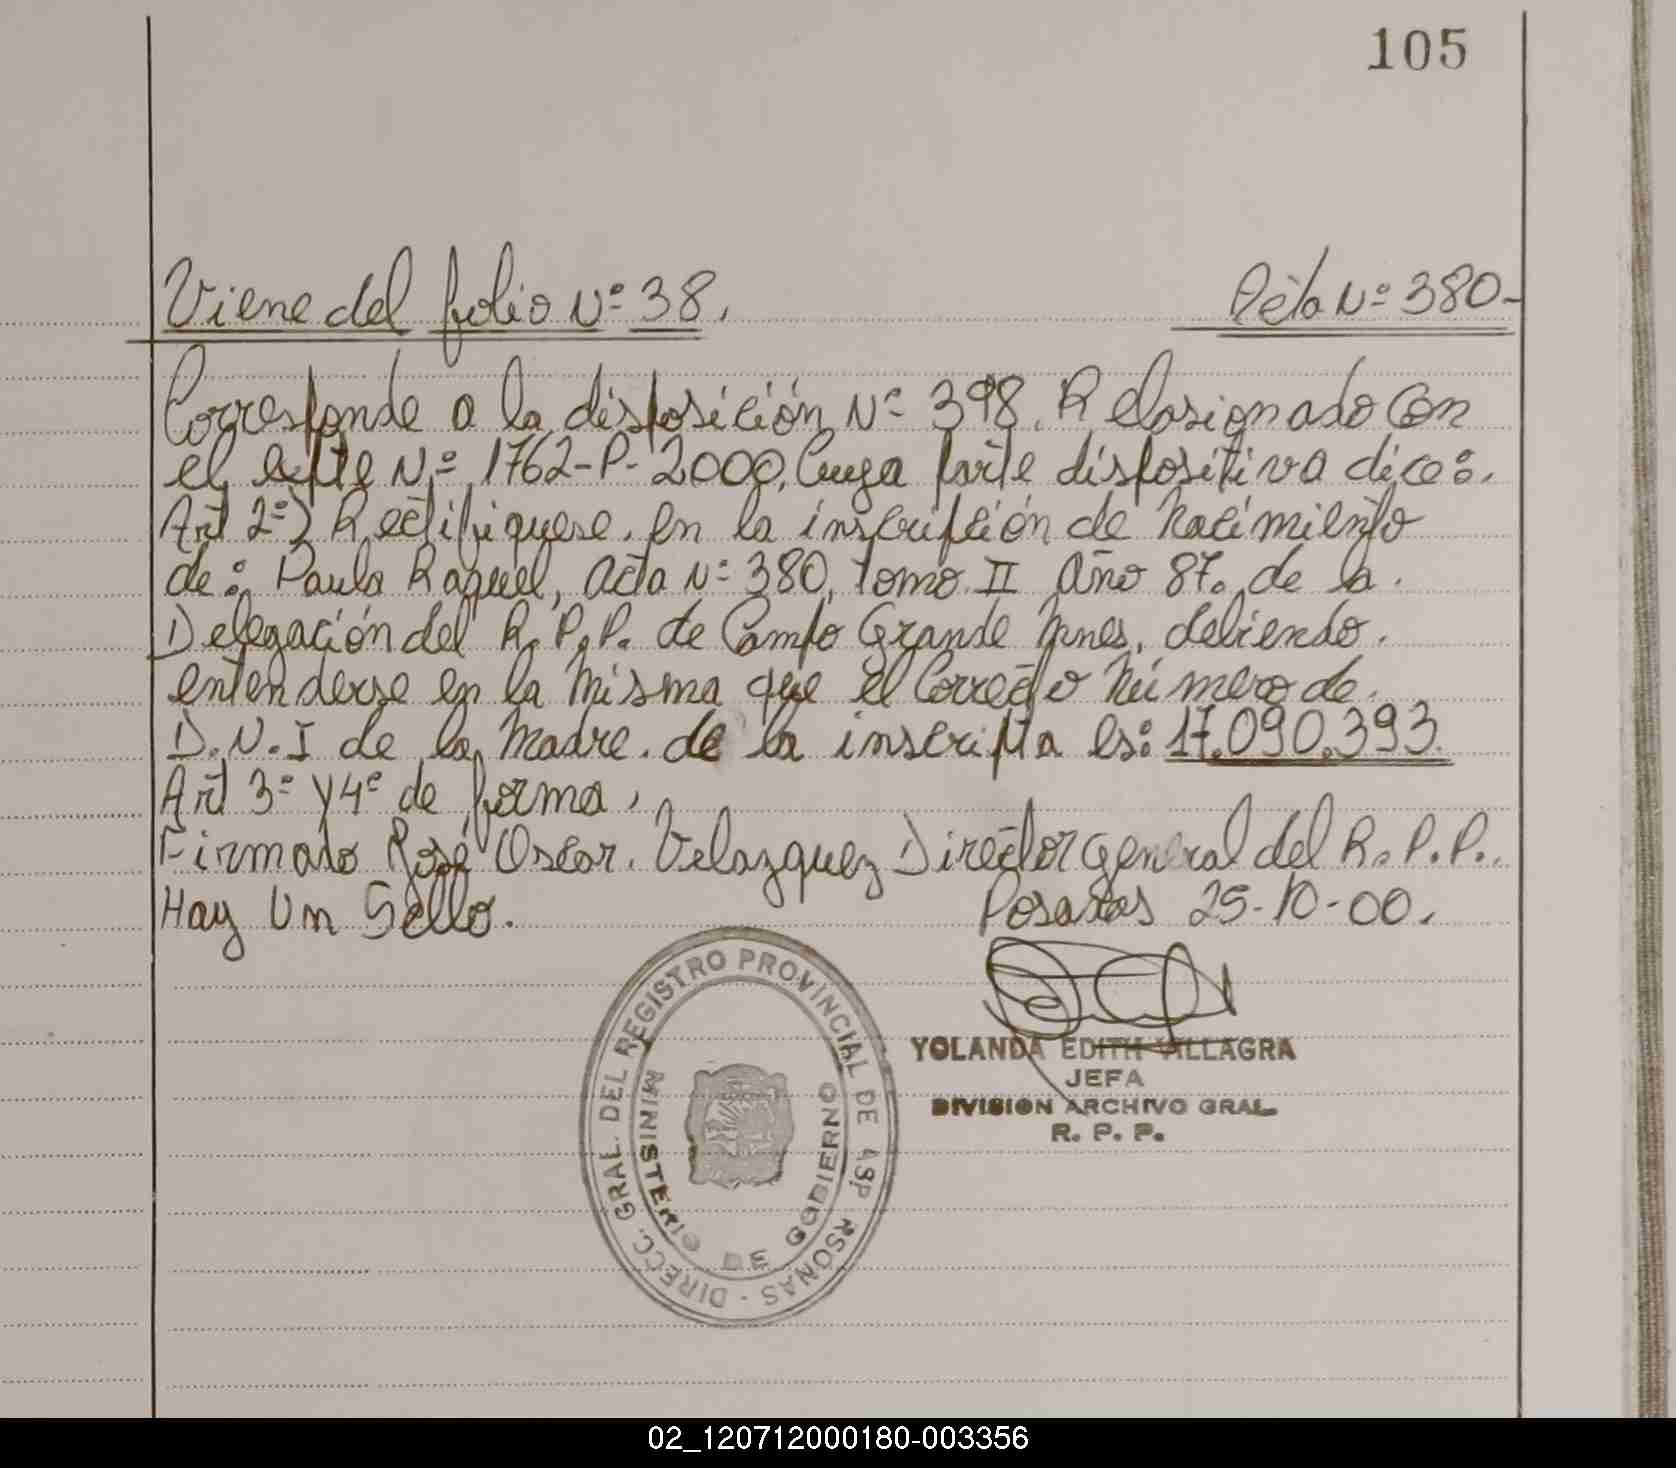 105
Viene del folio Nº 38. Acta Nº 380-
Corresponde a la disposición Nº 398. Relasionado Con
el expte Nº 1762-P-2000, Cuya parte dispositiva dice:.
Art 2º) Rectifiquese. en la inscripción de Nacimiento
de: Paula Raquel, acta Nº 380, Tomo II Año 87. de la.
Delegación del R.P.P. de Campo Grande Mnes, debiendo.
entenderse en la Misma que el Correcto Número de.
D.N.I de la Madre. de la inscripta es: 17.090.393.
Art 3º y 4º de forma,
Firmado José Oscar. Velazquez Director General del R.P.P..
Hay Un Sello. Posadas 25-10-00.
DIRECC. GRAL. DEL REGISTRO PROVINCIAL DE RSONAS -
MINISTERIO DE GOBIERNO
YOLANDA EDITH VILLAGRA
JEFA
DIVISION ARCHIVO GRAL
R. P. P.
02_120712000180-003356